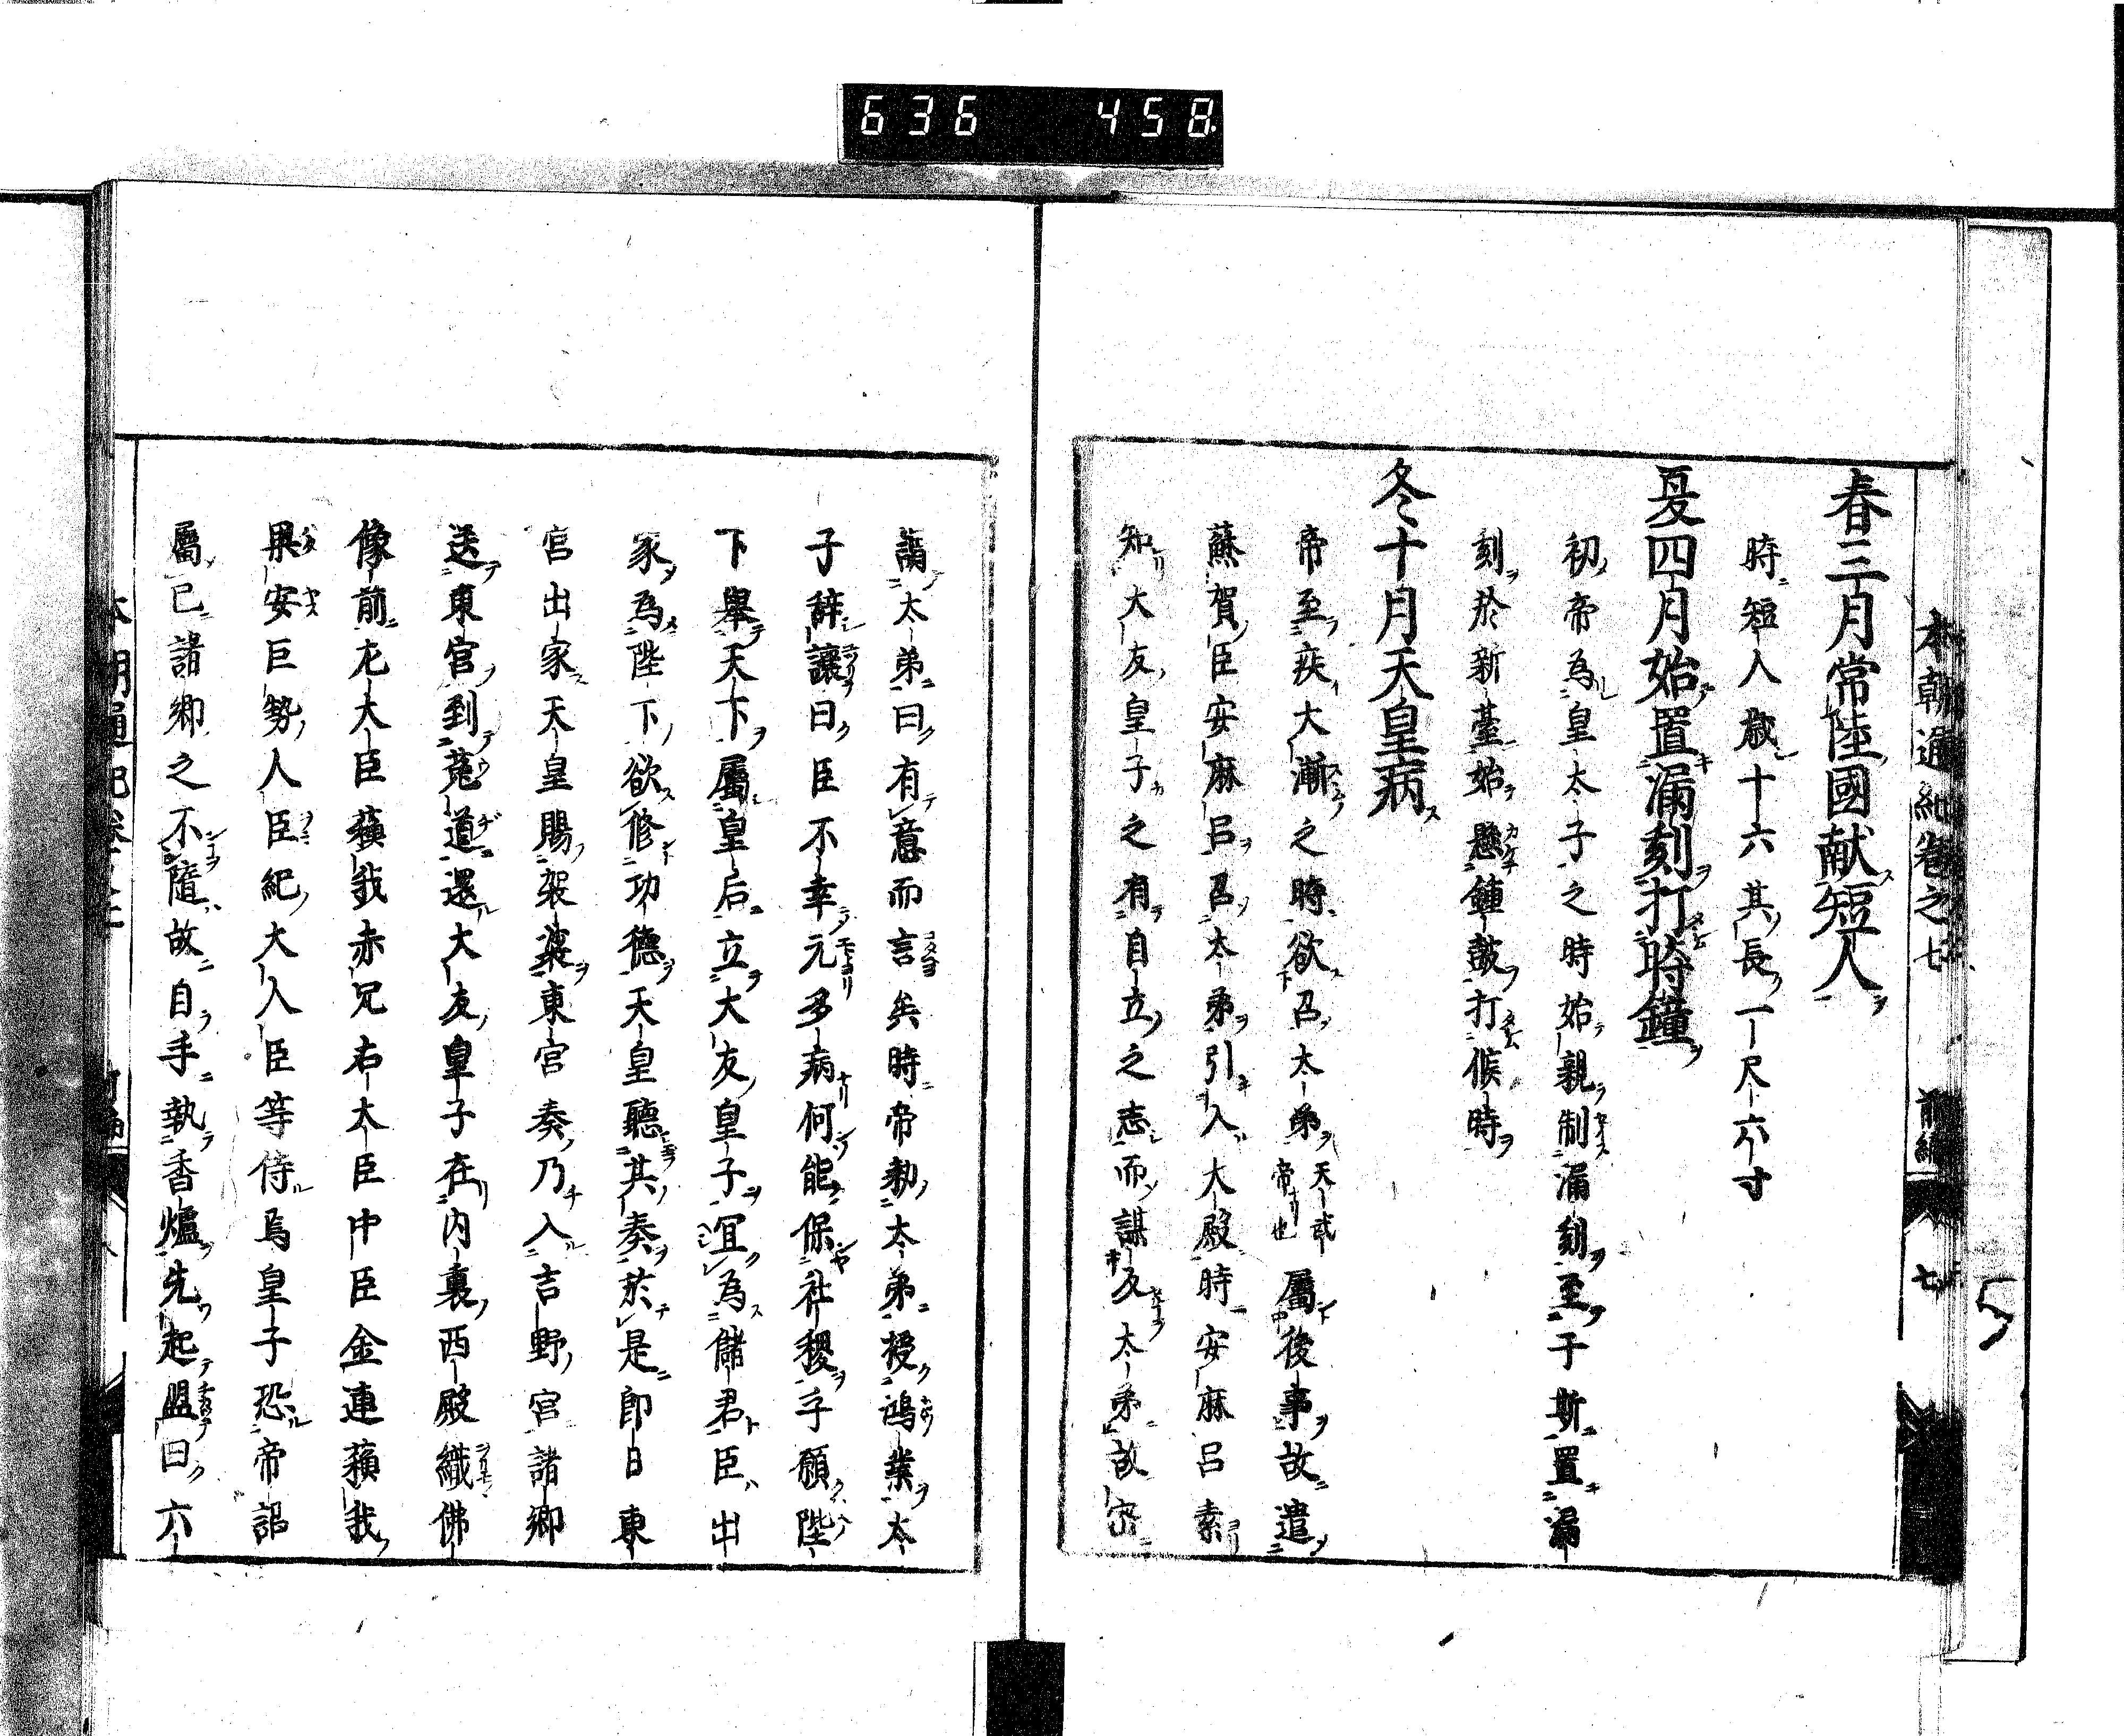 636 458
本朝通紀卷之七 前編 七
春三月常陸國献短人
時短人歲十六其長一尺六寸
夏四月始置漏刻打時鐘
初帝為皇太子之時始親制漏刻至于斯置漏
刻於新臺始懸鍾鼓打候時
冬十月天皇病
帝至疾大漸之時欲召太弟天武帝也屬後事故遣
蘇賀臣安麻呂召太弟引入大殿時安麻呂素
知大友皇子之有自立之志而謀太弟故密
謂太弟曰有意而言矣時帝勅太弟授鴻業太
子辭讓曰臣不幸元多病何能保社稷乎願陛
下舉天下屬皇后立大友皇子宜為儲君臣出
家為陛下欲修功德天皇聽其奏於是即日東
宮出家天皇賜袈裟東宮奏乃入吉野宮諸卿
送東宮到菟道還大友皇子在内裏西殿織佛
像前左大臣蘓我赤兄右大臣中臣金連蘓我
果安巨勢人臣紀大人臣等侍焉皇子恐帝詔
屬已諸卿之不隨故自手執香爐先起盟曰六